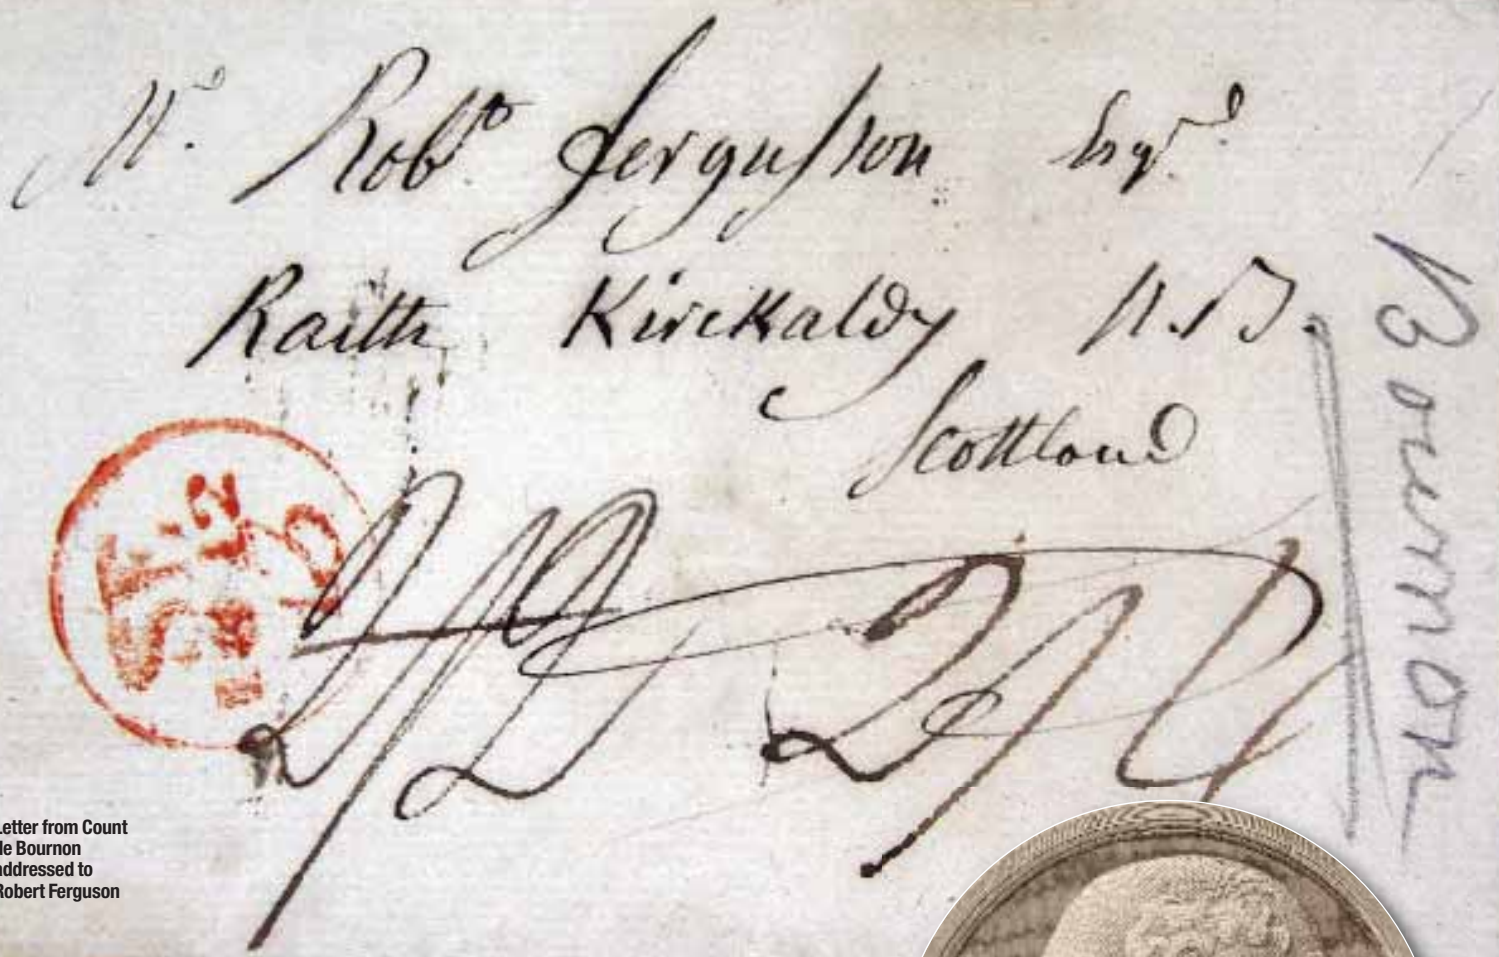 Mr. Robt. Fergusson Esqr.
Raith Kirckaldy N.B.
Scottland
Bournon
Letter from Count
de Bournon
addressed to
Robert Ferguson